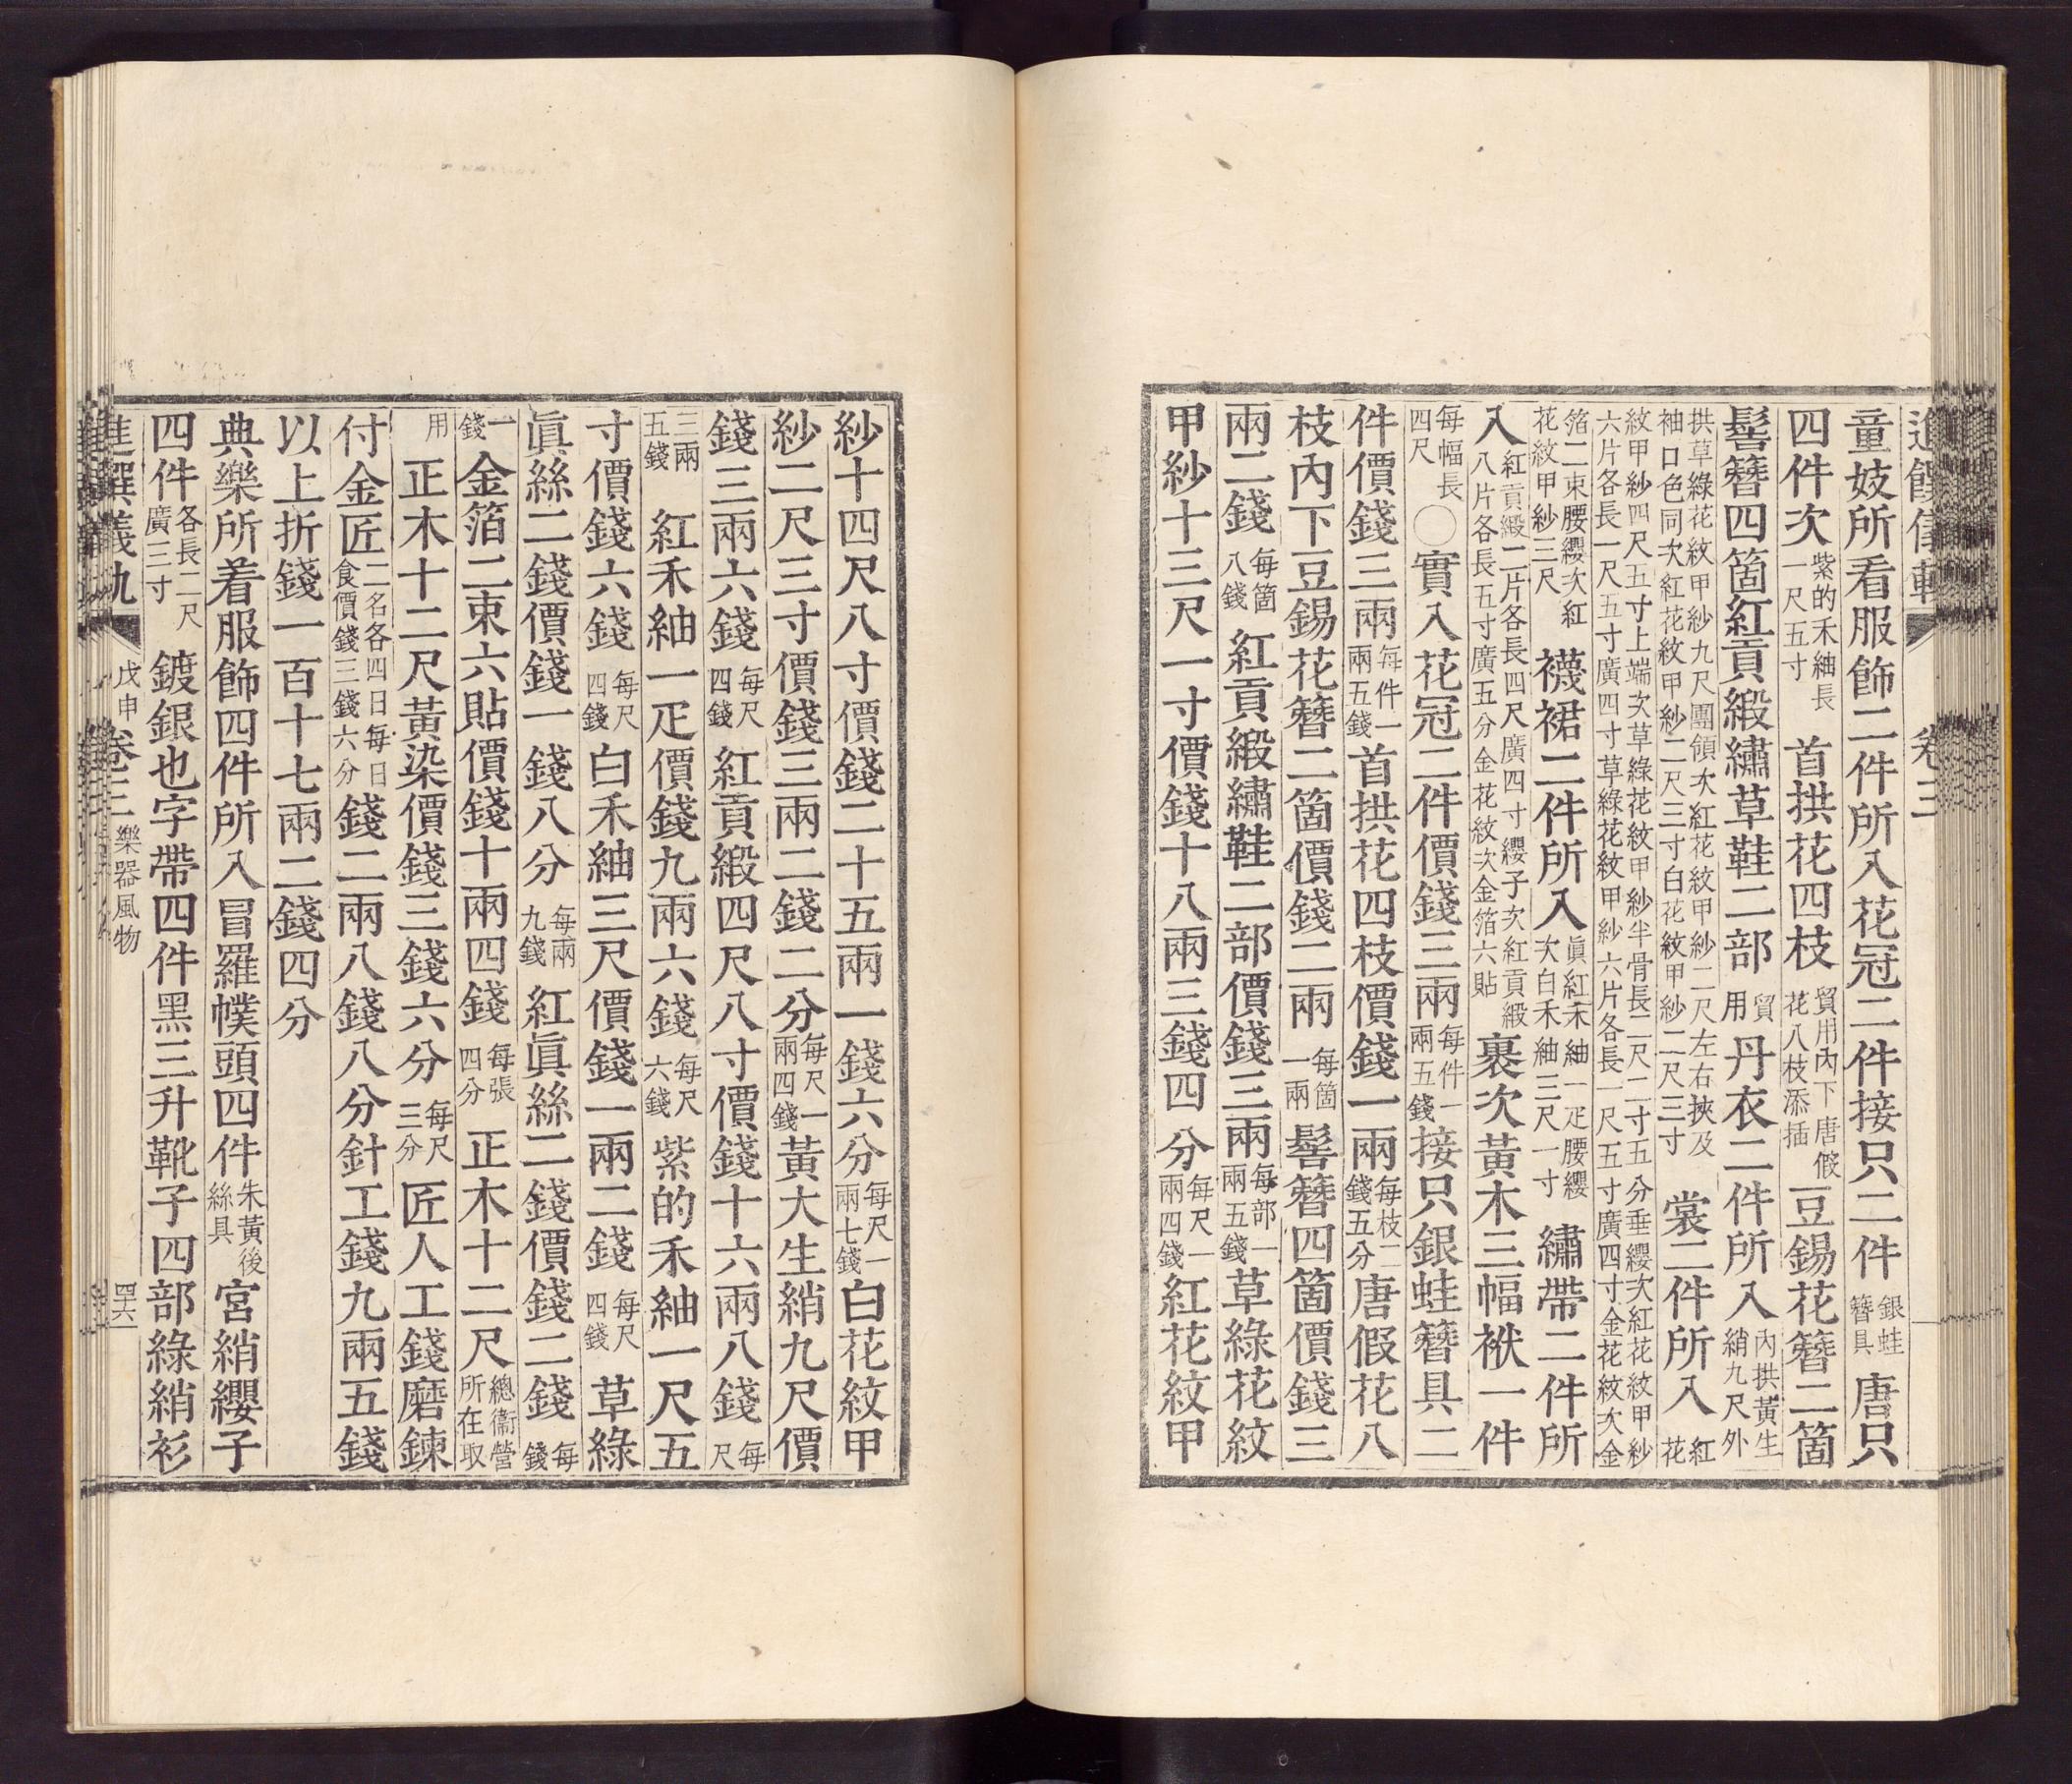 進饌儀軌 卷三
童妓所看服飾二件所入花冠二件接只二件銀蛙簪具唐只
四件次紫的禾紬長一尺五寸首拱花四枝貿用內下唐假花八枝添揷豆錫花簪二箇
髻簪四箇紅貢緞繡草鞋二部貿用丹衣二件所入內拱黃生綃九尺外
拱草綠花紋甲紗九尺團領次紅花紋甲紗二尺左右挾及袖口色同次紅花紋甲紗二尺三寸白花紋甲紗二尺三寸裳二件所入紅花
紋甲紗四尺五寸上端次草綠花紋甲紗半骨長二尺二寸五分垂纓次紅花紋甲紗六片各長一尺五寸廣四寸草綠花紋甲紗六片各長一尺五寸廣四寸金花紋次金
箔二束腰纓次紅花紋甲紗三尺襪裙二件所入眞紅禾紬一疋腰纓次白禾紬三尺一寸繡帶二件所
入紅貢緞二片各長四尺廣四寸纓子次紅貢緞八片各長五寸廣五分金花紋次金箔六貼裹次黃木三幅袱一件
每幅長四尺〇實入花冠二件價錢三兩每件一兩五錢接只銀蛙簪具二
件價錢三兩每件一兩五錢首拱花四枝價錢一兩每枝二錢五分唐假花八
枝內下豆錫花簪二箇價錢二兩每箇一兩髻簪四箇價錢三
兩二錢每箇八錢紅貢緞繡鞋二部價錢三兩每部一兩五錢草綠花紋
甲紗十三尺一寸價錢十八兩三錢四分每尺一兩四錢紅花紋甲
紗十四尺八寸價錢二十五兩一錢六分每尺一兩七錢白花紋甲
紗二尺三寸價錢三兩二錢二分每尺一兩四錢黃大生綃九尺價
錢三兩六錢每尺四錢紅貢緞四尺八寸價錢十六兩八錢每尺
三兩五錢紅禾紬一疋價錢九兩六錢每尺六錢紫的禾紬一尺五
寸價錢六錢每尺四錢白禾紬三尺價錢一兩二錢每尺四錢草綠
眞絲二錢價錢一錢八分每兩九錢紅眞絲二錢價錢二錢每錢
一錢金箔二束六貼價錢十兩四錢每張四分正木十二尺總衞營所在取
用正木十二尺黃染價錢三錢六分每尺三分匠人工錢磨鍊
付金匠二名各四日每日食價錢三錢六分錢二兩八錢八分針工錢九兩五錢
以上折錢一百十七兩二錢四分
典樂所着服飾四件所入冒羅幞頭四件朱黃後絲具宮綃纓子
四件各長二尺廣三寸鍍銀也字帶四件黑三升靴子四部綠綃衫
進饌儀軌 戊申 卷三 樂器風物 四六